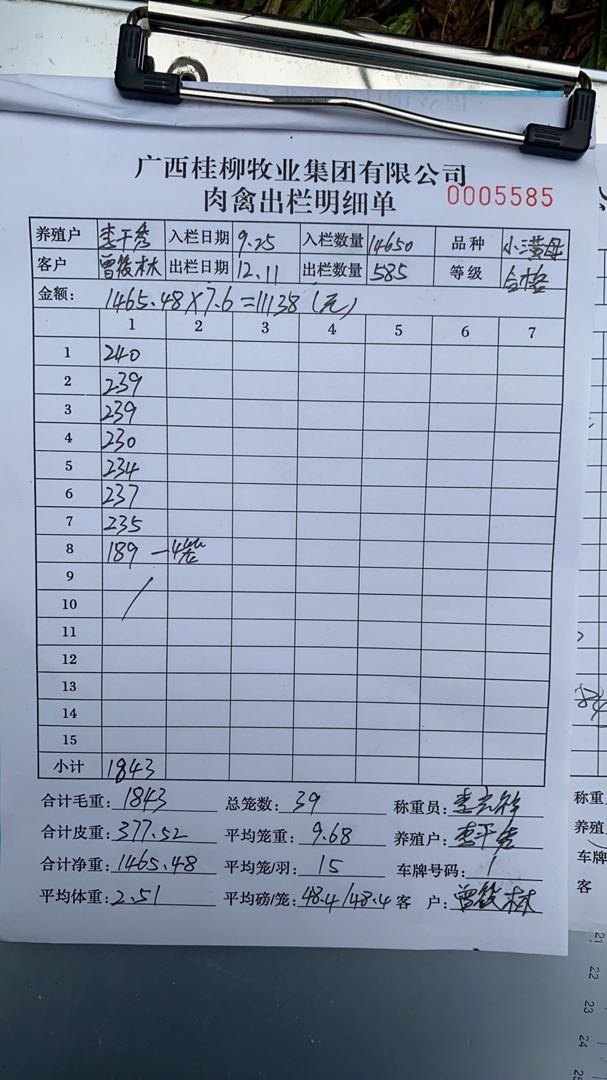 广西桂柳牧业集团有限公司
肉禽出栏明细单 0005585
养殖户 李干秀 入栏日期 9.25 入栏数量 14650 品种 小黄母
客户 曾筱林 出栏日期 12.11 出栏数量 585 等级 合格
金额: 1465.48×7.6=11138(元)
1 2 3 4 5 6 7
1 240
2 239
3 239
4 230
5 234
6 237
7 235
8 189 —4笼
9
10 /
11
12
13
14
15
小计 1843
合计毛重: 1843 总笼数: 39 称重员:
合计皮重: 377.52 平均笼重: 9.68 养殖户: 李干秀
合计净重: 1465.48 平均笼/羽: 15 车牌号码: /
平均体重: 2.51 平均磅/笼: 48.4/48.4 客 户: 曾筱林
称重
养殖
车牌
客
21
22
23
24
25